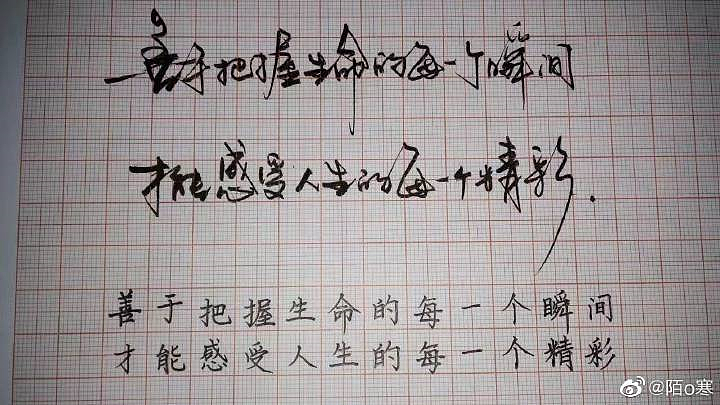 善于把握生命的每一个瞬间
才能感受人生的每一个精彩.
善于把握生命的每一个瞬间
才能感受人生的每一个精彩
@陌o寒